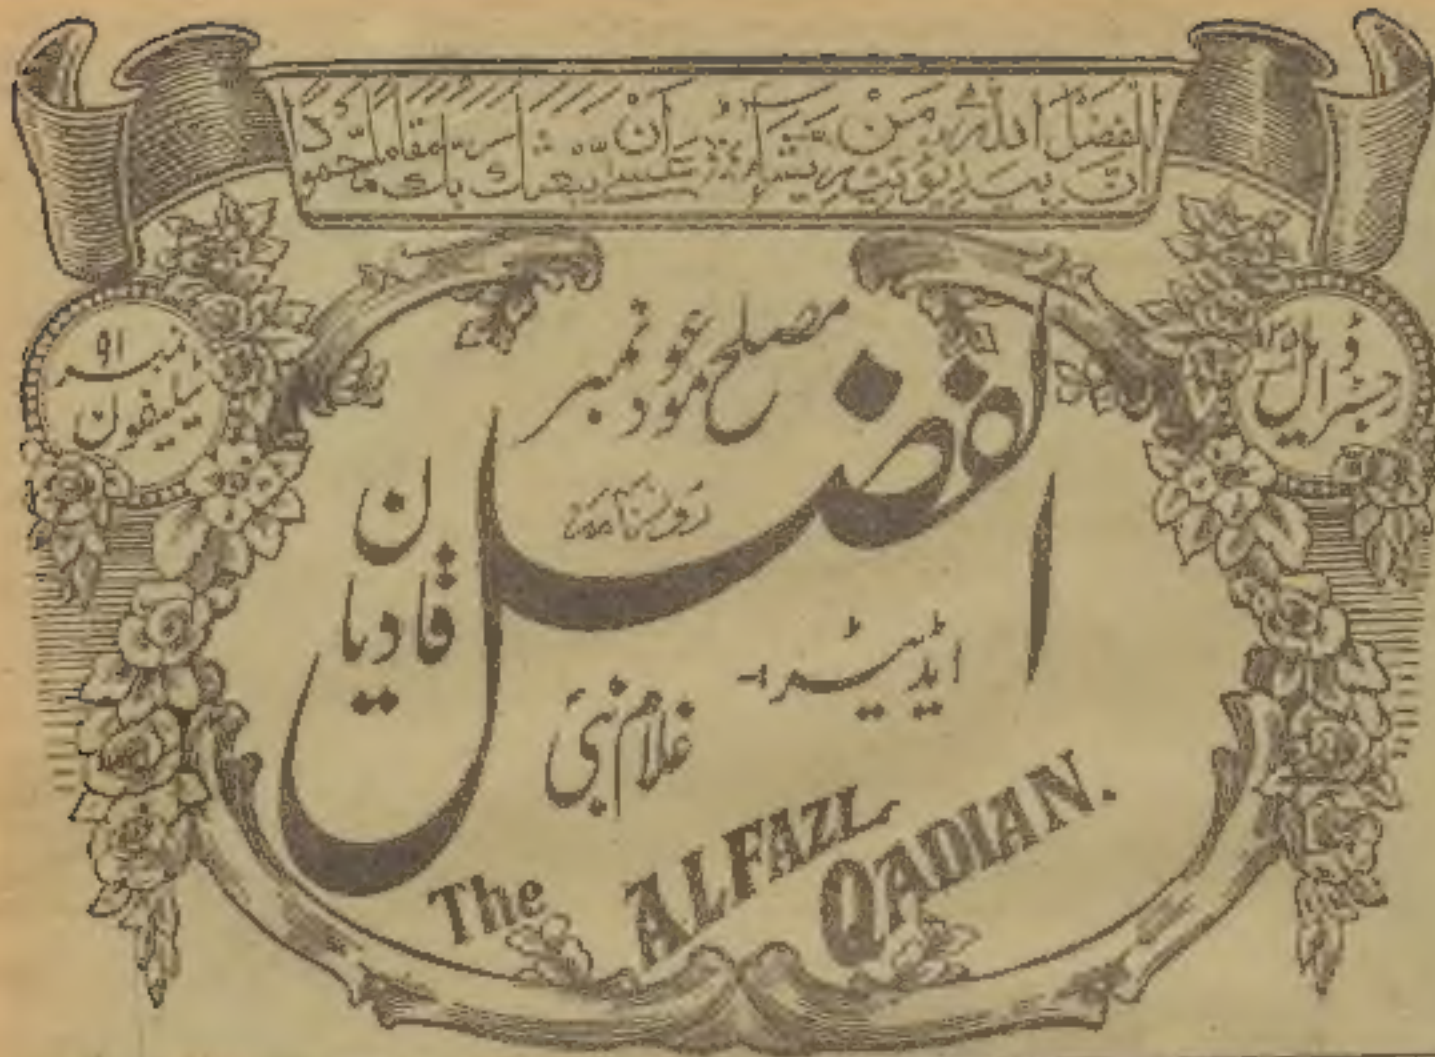 ان الفضل بید اللہ یؤتیہ من یشاء عسیٰ ان یبعثک ربک مقاما محمودا
رجسٹرڈ ایل
نمبر ۹۱
ٹیلیفون
مصلح موعود نمبر
الفضل
روزنامہ
قادیان
ایڈیٹر:-
غلام نبی
The ALFAZL
QADIAN.